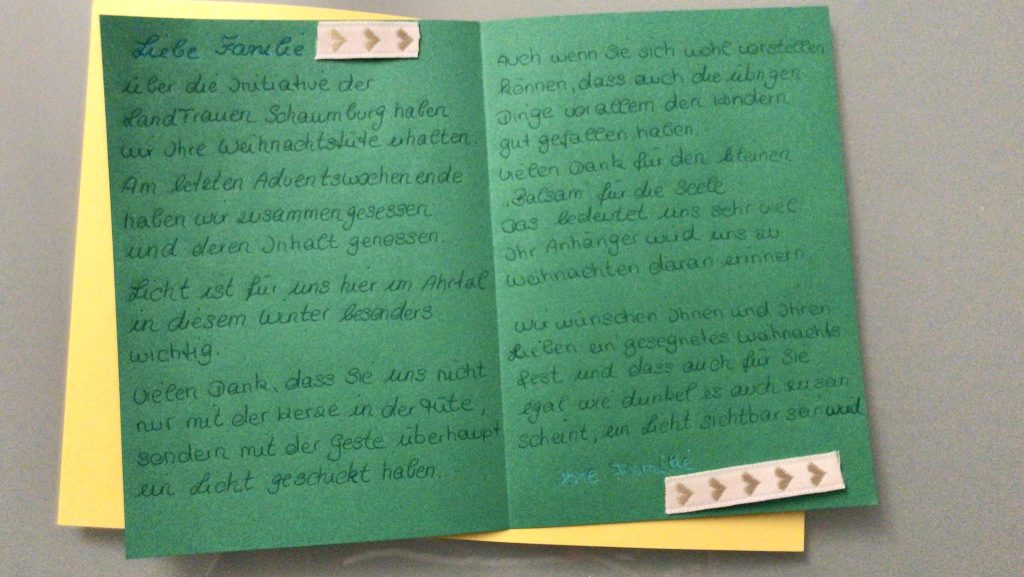 Liebe Familie
über die Initiative der
LandFrauen Schaumburg haben
wir Ihre Weihnachtstüte erhalten.
Am letzten Adventswochenende
haben wir zusammengesessen
und deren Inhalt genossen.
Licht ist für uns hier im Ahrtal
in diesem Winter besonders
wichtig.
Vielen Dank, dass Sie uns nicht
nur mit der Kerze in der Tüte,
sondern mit der Geste überhaupt
ein Licht geschickt haben.
Auch wenn Sie sich wohl vorstellen
können, dass auch die übrigen
Dinge vorallem den Kindern
gut gefallen haben.
Vielen Dank für den kleinen
"Balsam" für die Seele
Das bedeutet uns sehr viel.
Ihr Anhänger wird uns zu
Weihnachten daran erinnern.
Wir wünschen Ihnen und Ihren
Lieben ein gesegnetes Weihnachts
fest und dass auch für Sie
egal wie dunkel es auch zu sein
scheint, ein Licht sichtbar sein wird
Ihre Familie